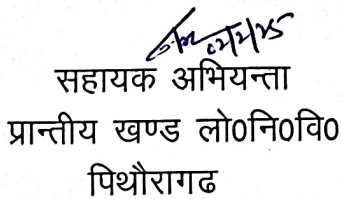 02/2/25
सहायक अभियन्ता
प्रान्तीय खण्ड लो0नि0वि0
पिथौरागढ